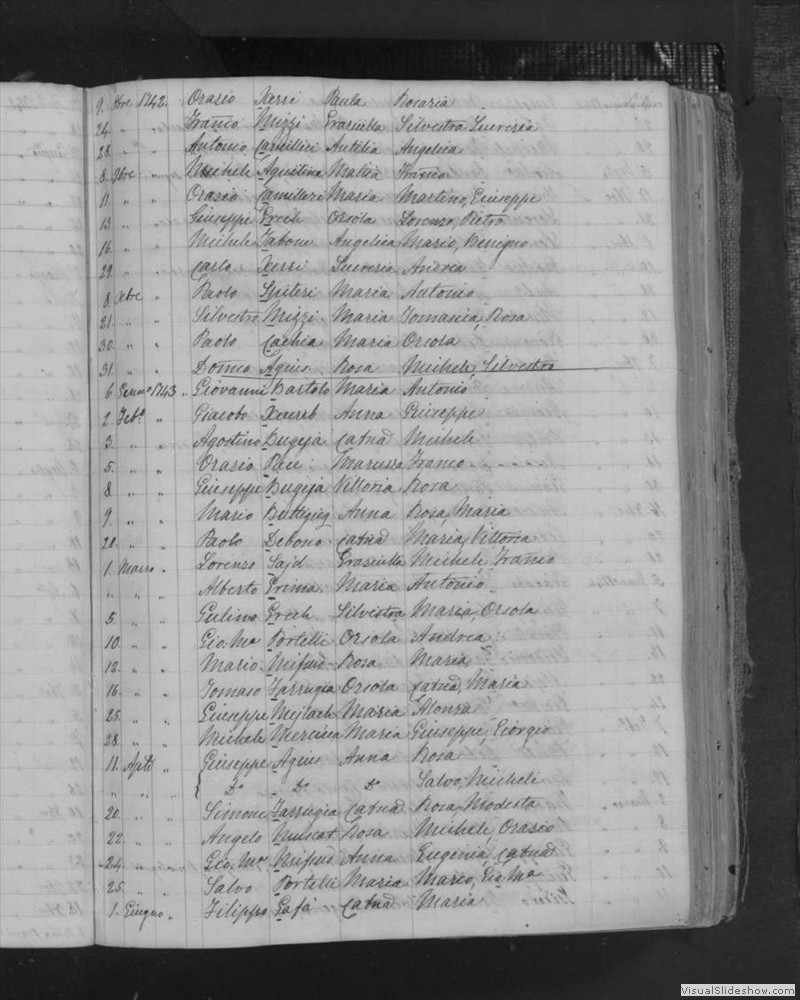 9. 8bre 1742. Orazio Xerri Paula Rosaria
24. " " Franco Mizzi Grasiulla Silvestra, Lucrezia
28. " " Antonio Camilleri Autilia Angelica
8. 9bre " Michele Agustina Maria Franco
11. " " Orazio Camilleri Maria Martino, Giuseppe
13 " " Giuseppe Grech Orsola Lorenzo, Pietro
16. " " Michele Zabone Angelica Mario, Benigno
29. " " Carlo Xerri Lucrezia Andrea
8. Xbre " Paolo Spiteri Maria Antonio
21. " " Silvestro Mizzi Maria Tomasica, Rosa
30. " " Paolo Cachia Maria Orsola
31. " " Donno Agius Rosa Michele, Silvestro
6. Genno 1743. Giovanni Bartolo Maria Antonio
2. Feb.º " Giacobo Xuereb Anna Giuseppe
3. " " Agostino Bugeja Catna Michele
5. " " Orazio Pace Marussa Franco
8. " " Giuseppe Bugeja Vittoria Rosa
9. " " Mario Buttigieg Anna Rosa, Maria
20. " " Paolo Debono Catna Maria, Vittoria
1. Marzo " Lorenzo Sajd Grasiulla Michele, Franco
" " " Alberto Prima Maria Antonio
5. " " Gulino Grech Silvestra Maria, Orsola
10. " " Gio. Ma Portelli Orsola Andrea
12. " " Mario Mifsud Rosa Maria
16. " " Tomaso Farrugia Orsola Catna, Maria
25. " " Giuseppe Mejlach Maria Alonza
28. " " Michele Mercieca Maria Giuseppe, Giorgio
11. Aple " Giuseppe Agius Anna Rosa
" " " { Do Do Do Salvo, Michele
20. " " Simone Farrugia Catna Rosa, Modesta
22. " " Angelo Muscat Rosa Michele, Orazio
24. " " Gio. Ma Mifsud Anna Eugenia, Catna
25. " " Salvo Portelli Maria Mario, Gio Ma
1. Giugno " Filippo Gafà Catna Maria
VisualSlideshow.com